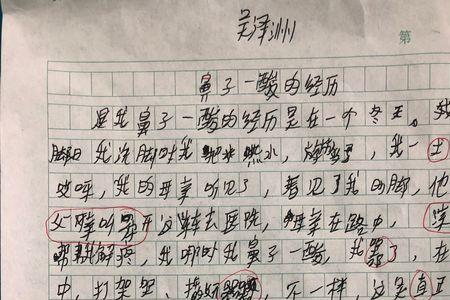 吴泽洲
第
鼻子一酸的经历
是我鼻子一酸的经历是在一个冬天。我
我洗脚时我 水,,我一
哎呀,我的母亲听见了,看见了我的脚,他
父亲叫 开这车去医院,母亲在路中,
帮我解疼,我那时我鼻子一酸,我 了,在
中,打架哭, 不一样,这是真正